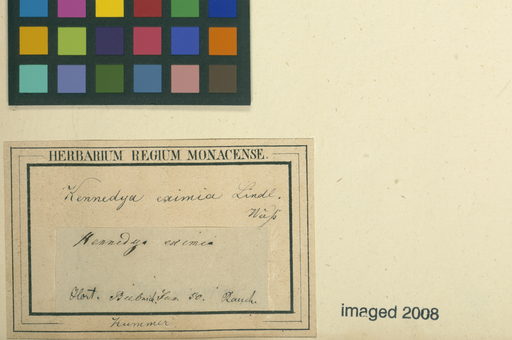 HERBARIUM REGIUM MONACENSE.
Kennedya eximia Lindl.
Kennedya eximia
Hort. Jan. 50. Rauch.
Kummer
imaged 2008